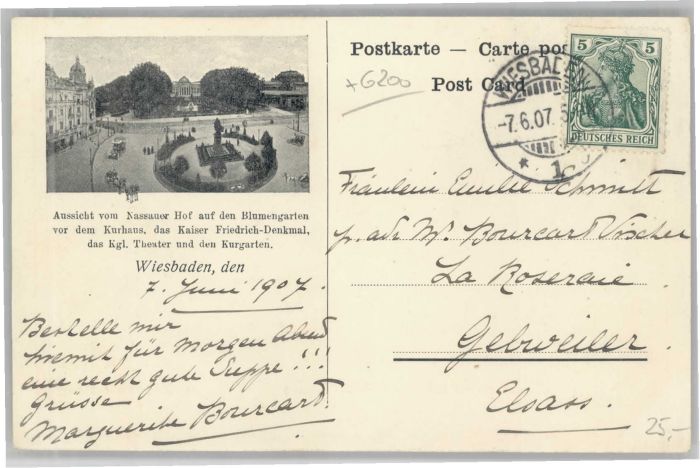 Postkarte — Carte pos
Post Card
+6200
5 5
DEUTSCHES REICH
WIESBADEN
-7.6.07.
* 1
Aussicht vom Nassauer Hof auf den Blumengarten
vor dem Kurhaus, das Kaiser Friedrich-Denkmal,
das Kgl. Theater und den Kurgarten.
Wiesbaden, den
7. Juni 1907.
Bestelle mir
hiemit für morgen Abend
eine recht gute Suppe!!!
Grüsse
Marguerite Bourcart.
Fräulein Emilie Schmitt
p. adr. Mr. Bourcart Vischer
La Roseraie
Gebweiler
Elsass.
25,-